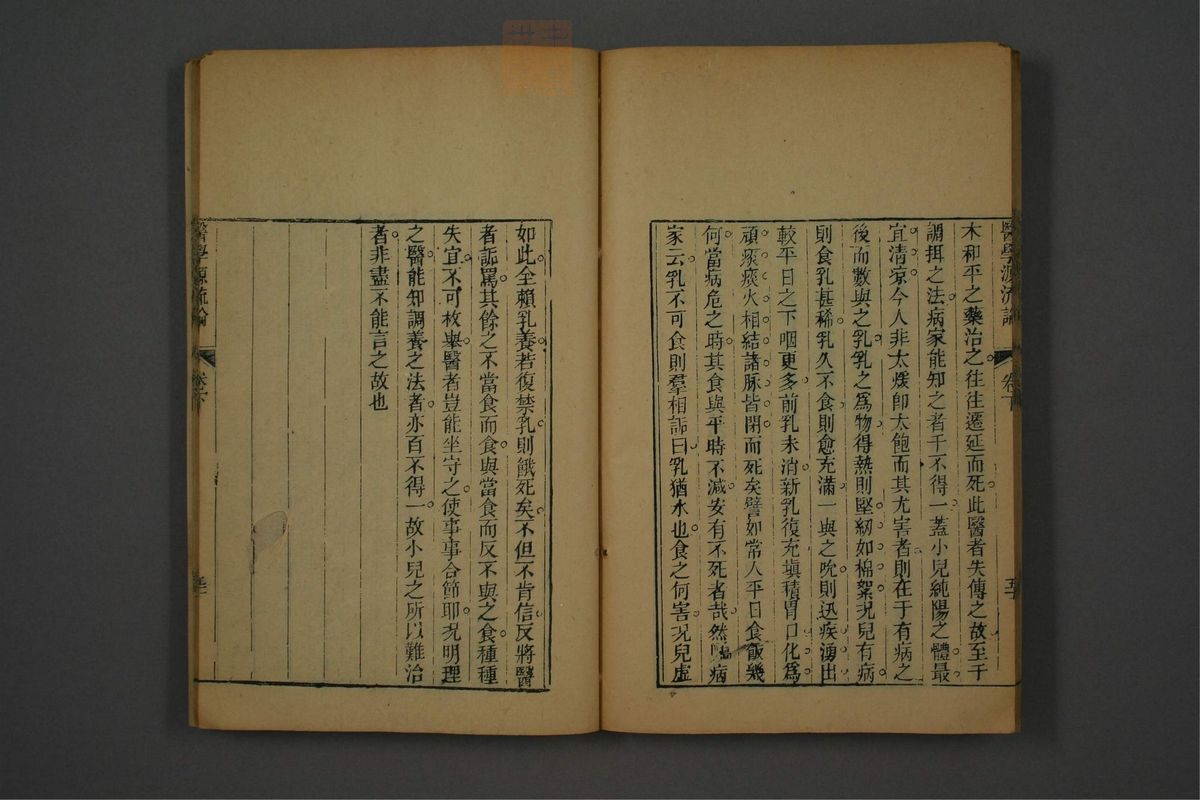 醫學源流論 卷下
木和平之藥治之往往遷延而死此醫者失傳之故至于
調攝之法病家能知之者千不得一蓋小兒純陽之體最
宜清涼今人非太煖卽太飽而其尤害者則在于有病之
後而數與之乳乳之爲物得熱則堅紉如棉絮况兒有病
則食乳甚稀乳久不食則愈充滿一與之吮則迅疾湧出
較平日之下咽更多前乳未消新乳復充塡積胃口化爲
頑痰痰火相結諸脉皆閉而死矣譬如常人平日食飯幾
何當病危之時其食與平時不減安有不死者哉然囑病
家云乳不可食則羣相詬曰乳猶水也食之何害况兒虛
如此全賴乳養若復禁乳則餓死矣不但不肯信反將醫
者詬罵其餘之不當食而食與當食而反不與之食種種
失宜不可枚舉醫者豈能坐守之使事事合節耶况明理
之醫能知調養之法者亦百不得一故小兒之所以難治
者非盡不能言之故也
醫學源流論